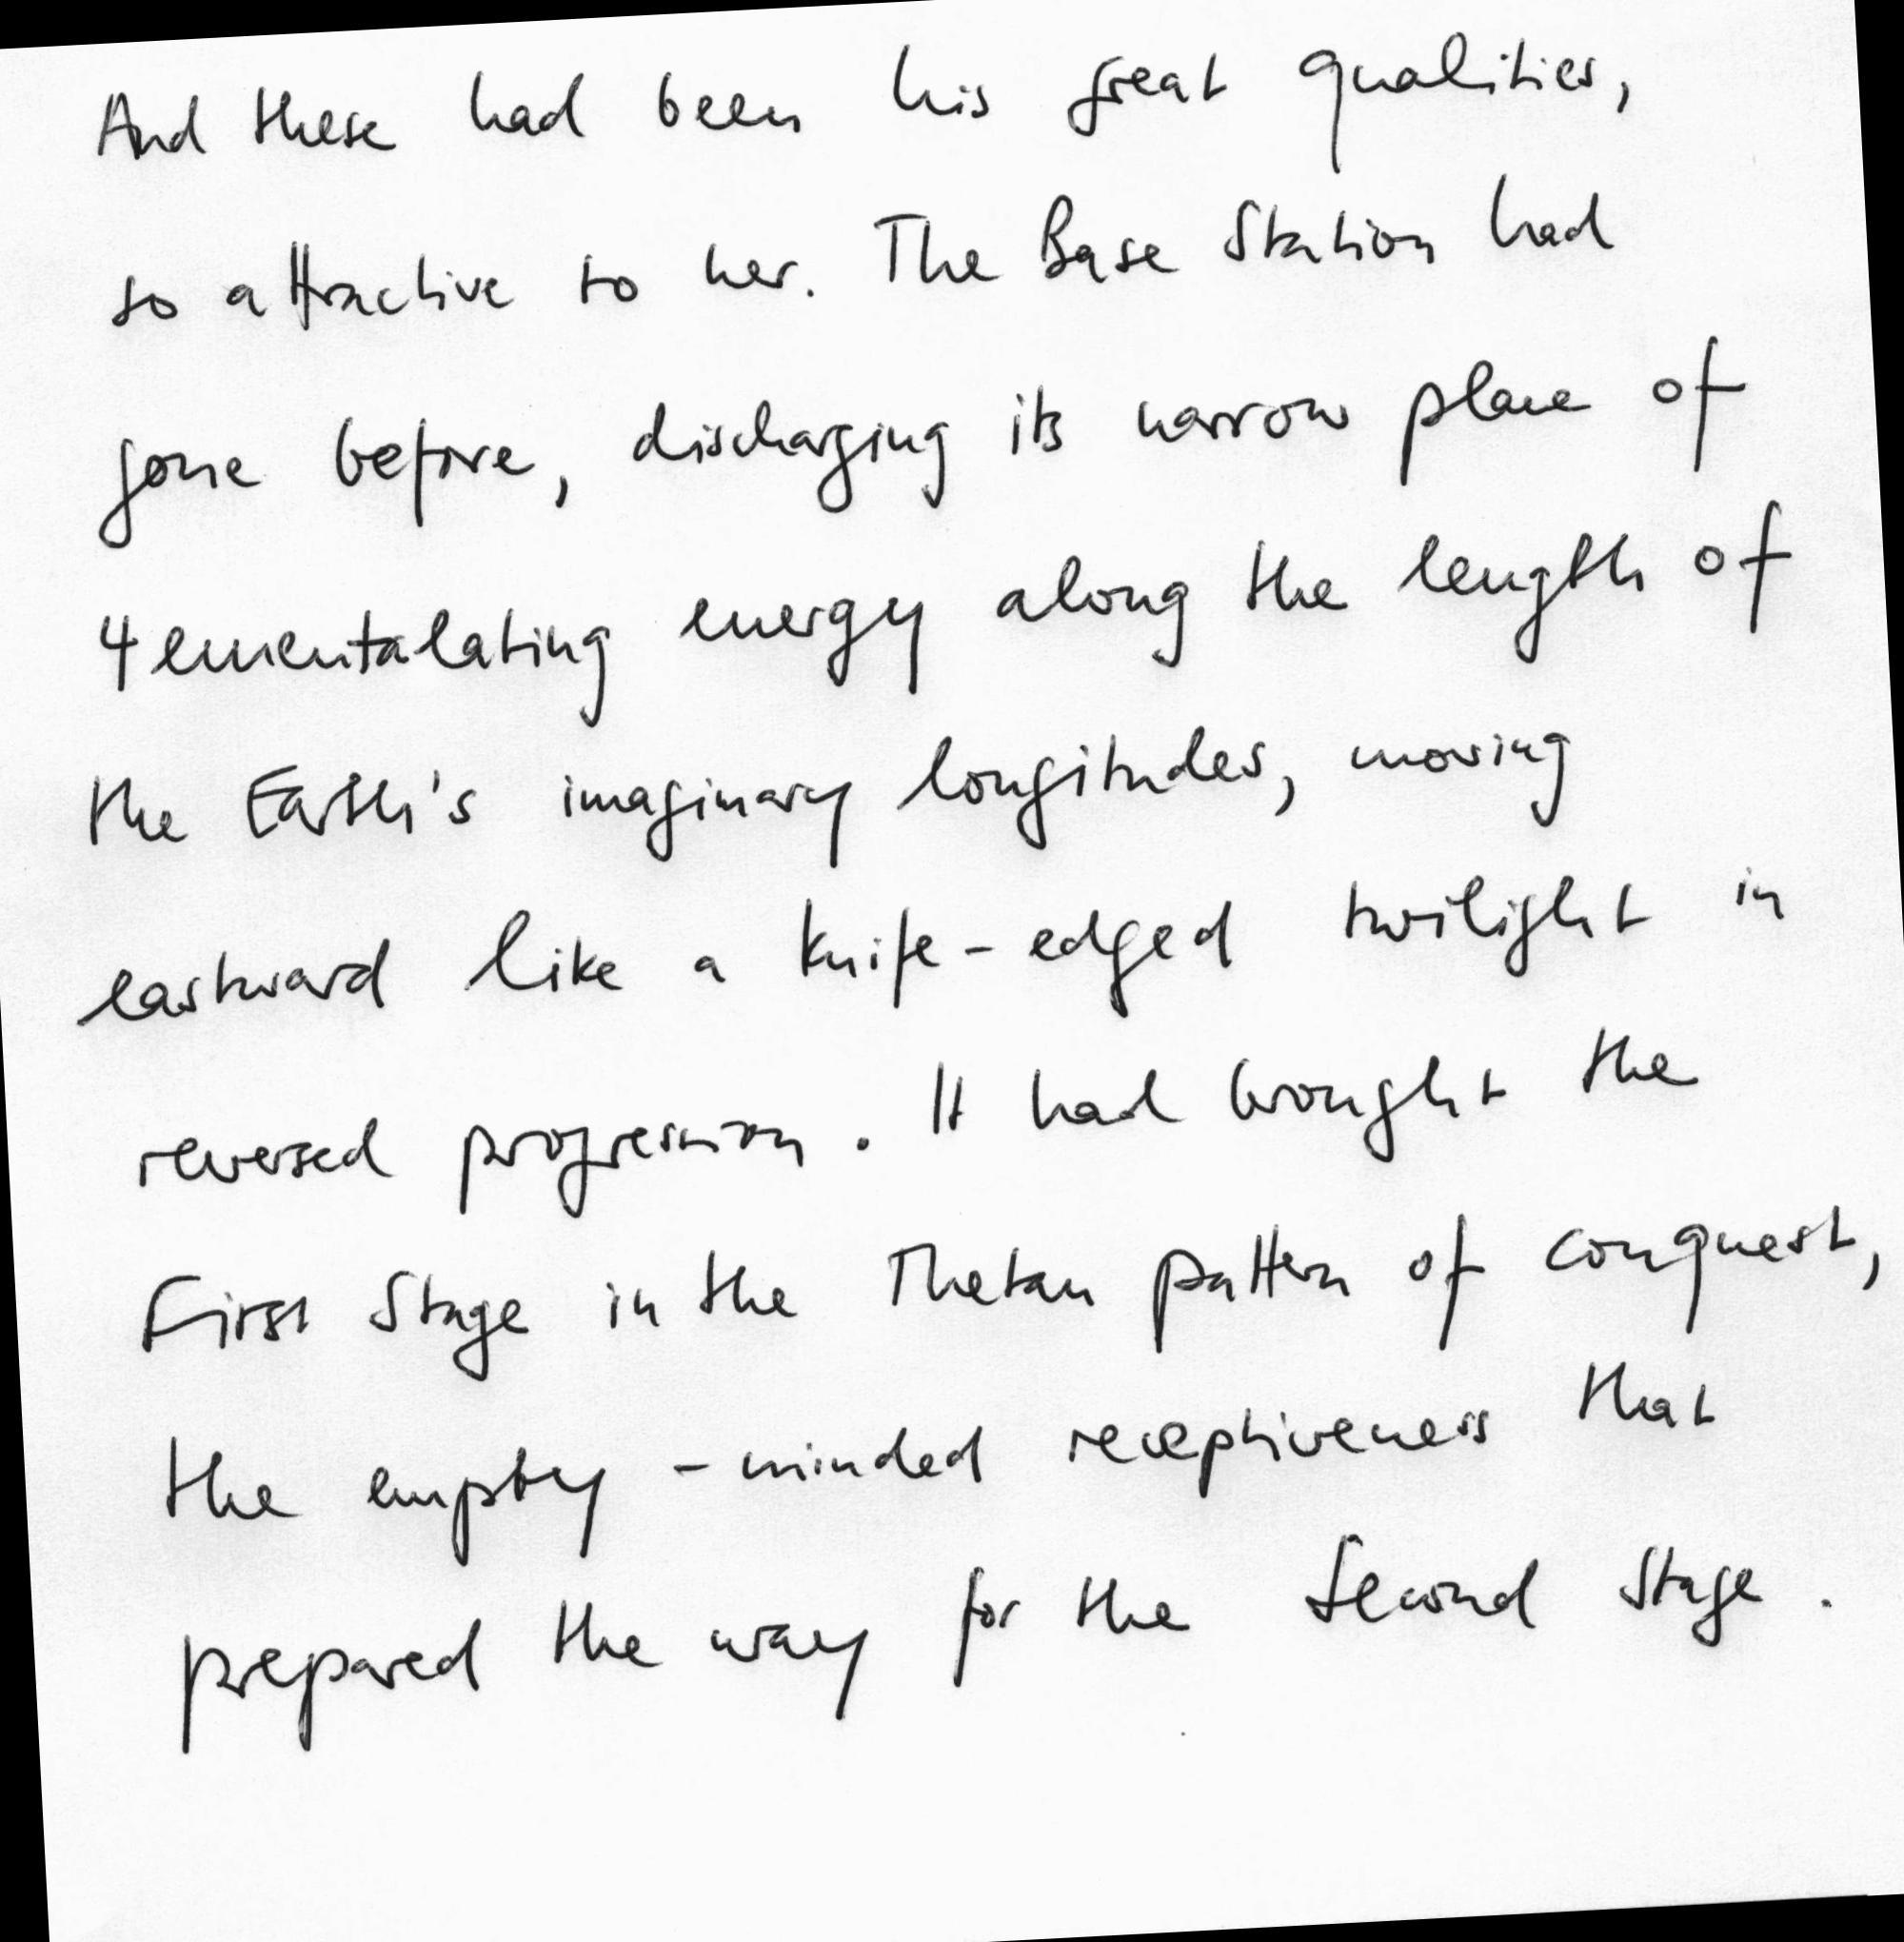 And these had been his great qualities,
so attractive to her. The Base Station had
gone before, discharging its narrow plane of
4ementalating energy along the length of
the Earth's imaginary longitudes, moving
eastward like a knife-edged twilight in
reversed progression. It had brought the
First Stage in the Thetan pattern of conquest,
the empty-minded receptiveness that
prepared the way for the Second Stage.